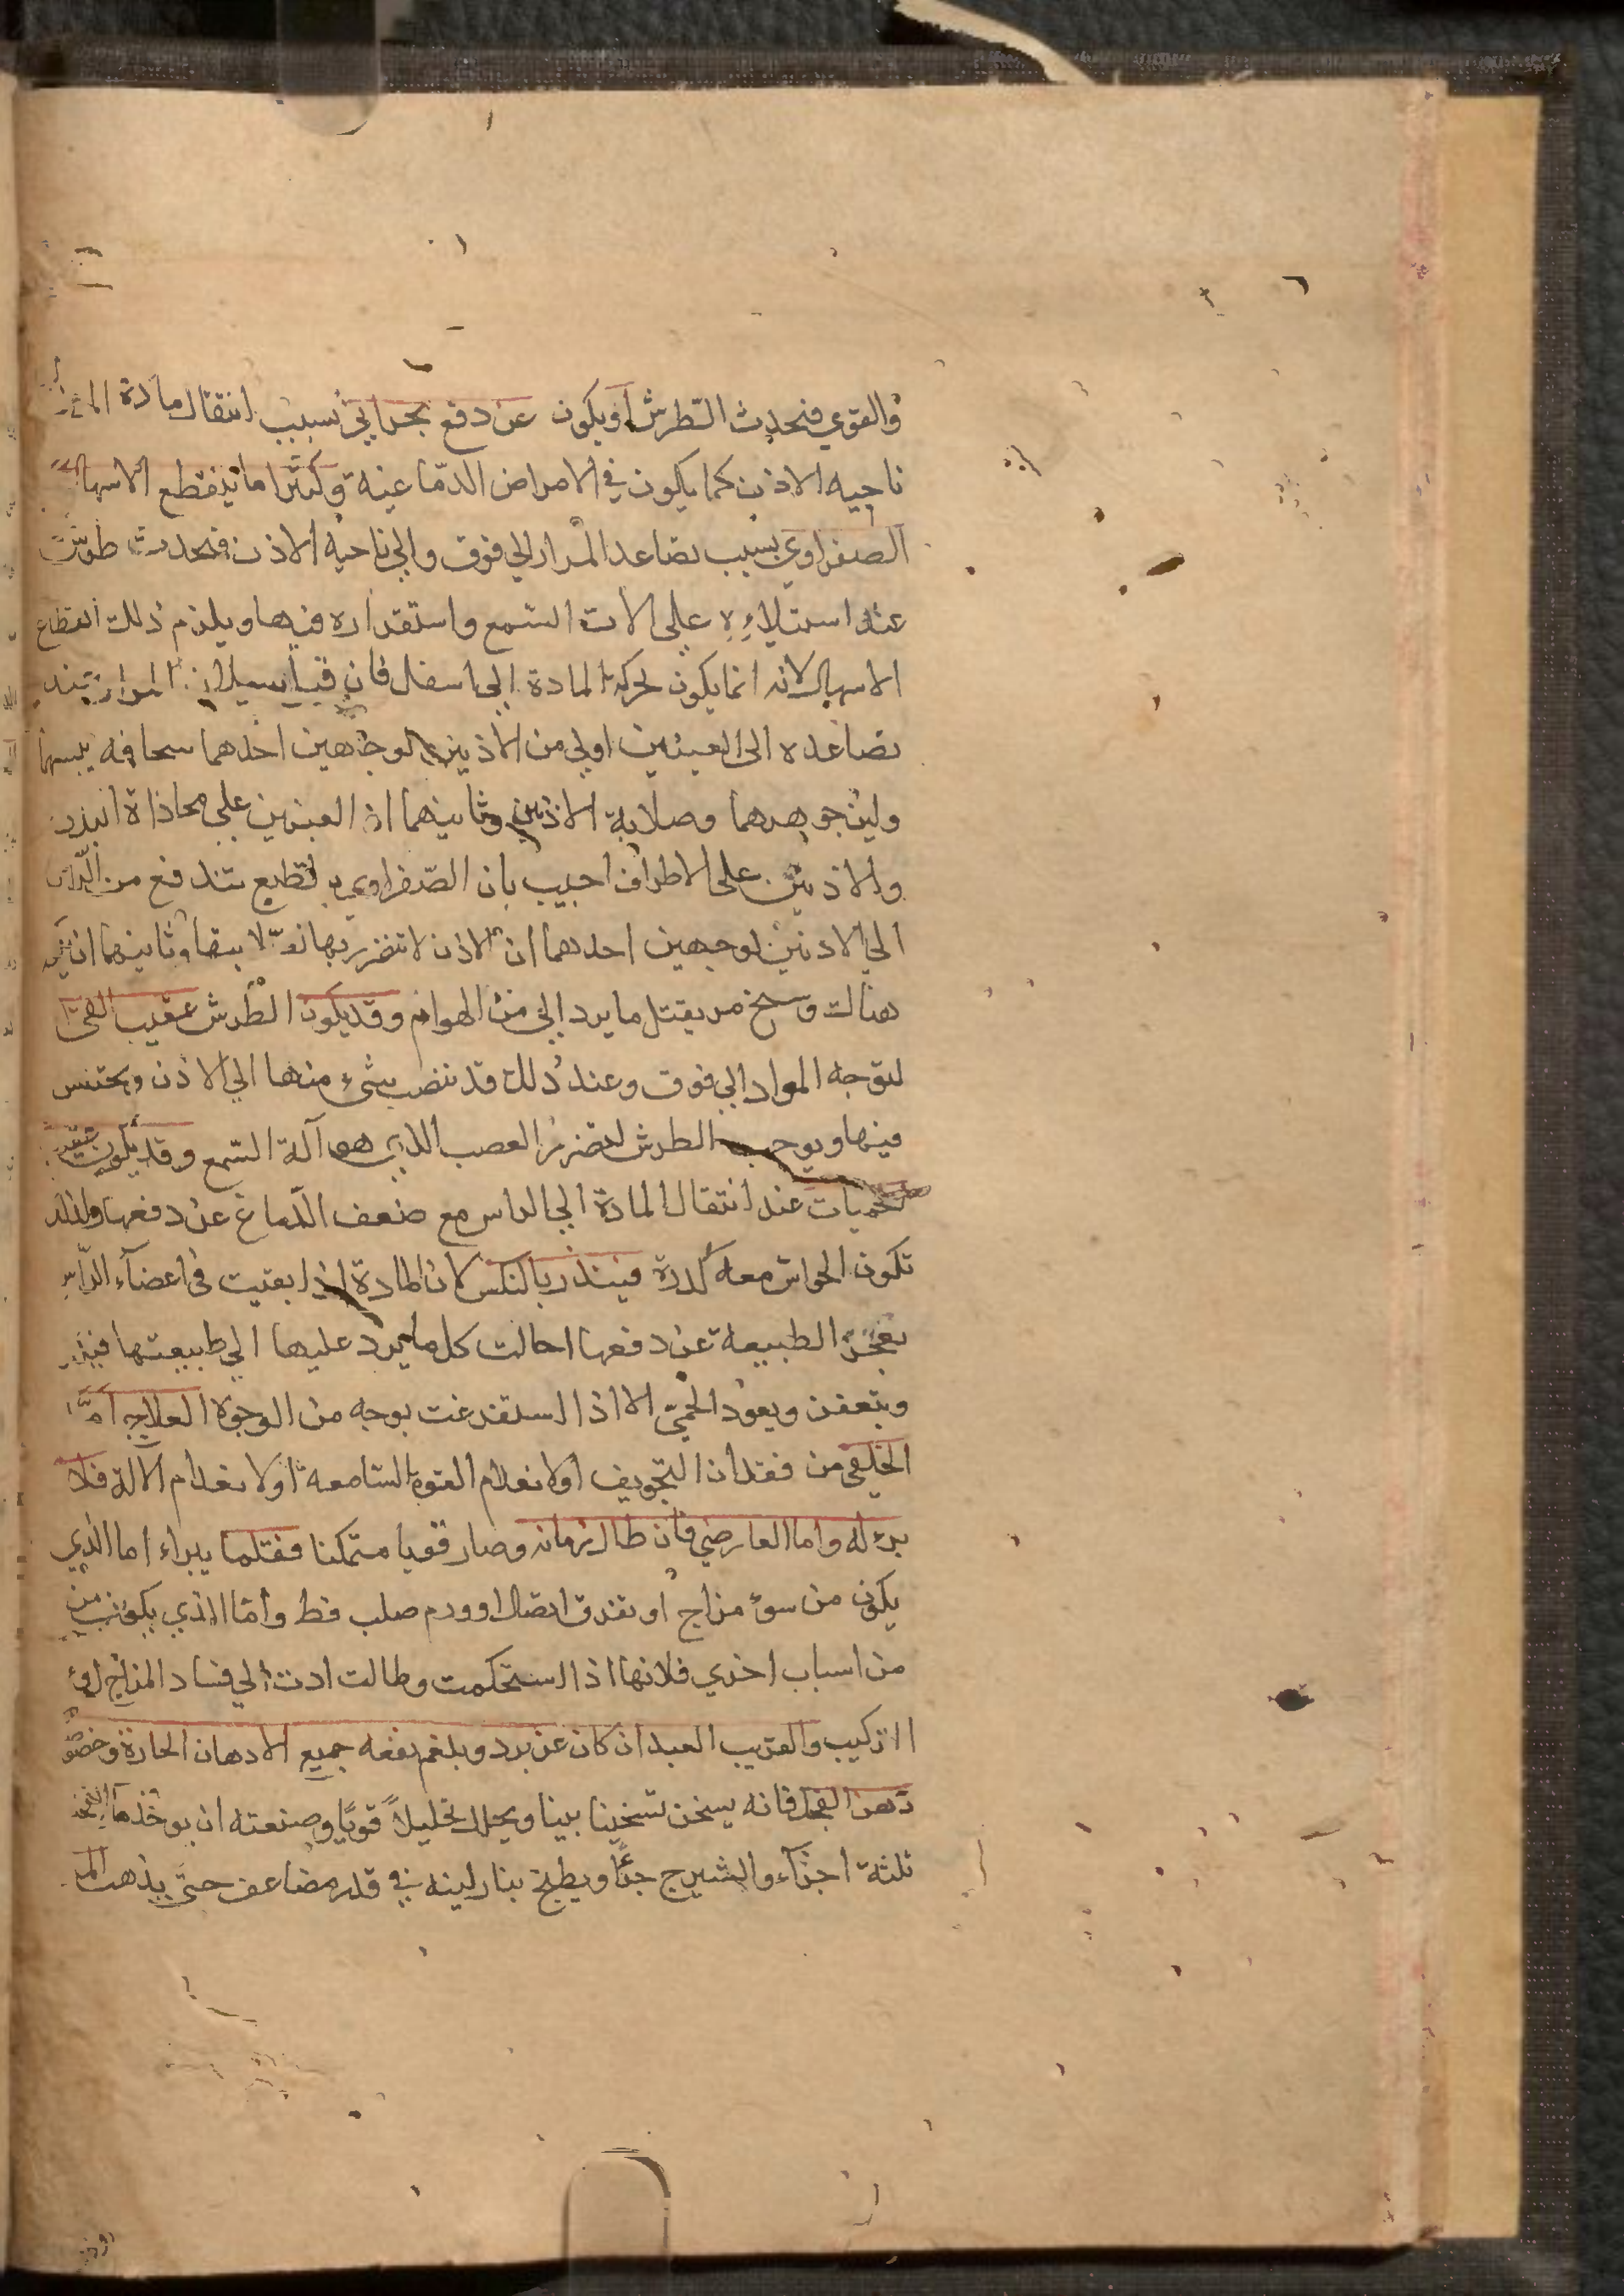 والقوي فيحدث الطرش او يكون عن دفع بحراني بسبب انتقال مادة
ناحيه الاذن كما يكون في الامراض الدماغية وكثيرا ما ينقطع الاسهال
الصفراوي بسبب تصاعد المرار الي فوق والي ناحية الاذن فيحدث طرش
عند استيلاءه علي الات السمع واستقراره فيها ويلزم ذلك انقطاع
الاسهال لانه انما يكون لحركة المادة الي اسفل فان قيل سيلان المرار
تصاعده الى العينين اولي من الاذنين لوجهين احدهما سخافه
ولين جوهرهما وصلابة الاذنين وثانيهما ان العينين علي محاذاة
والاذنين على الاطراف اجيب بان الصفراوي تندفع من
الي الاذنين لوجهين احدهما ان الاذن لا تتضرر بها وثانيهما ان
هنالك وسخ مر يقتل ما يرد الي من الهوام وقد يكون الطرش عقيب القي
لتوجه المواد الي فوق وعند ذلك قد تنصب شيء منها الي الاذن ويحتبس
فيها ويوجب الطرش لتضرر العصب الذي هو آلة السمع وقد يكون
حميات عند انتقال المادة الي الراس مع ضعف الدماغ عن دفعها ولذلك
تكون الحواس معه كدرة فينذر بالنكس لان المادة اذا بقيت في اعضاء الراس
بعجز الطبيعة عن دفعها احالت كل ما يرد عليها الي طبيعتها
ويتعفن ويعود الحمي الا اذا استفرغت بوجه من الوجوه العلاج اما
الخلقي من فقدان التجويف اولانعدام القوة السامعه اولانعدام الآلة فلا
برء له واما العارضي فان طال زمانه وصار قويا متمكنا فقلما يبراء اما الذي
يكون من سوء مزاج او تفرق اتصال او ورم صلب فط واما الذي يكون
من اسباب اخري فلانها اذا استحكمت وطالت ادت الي فساد المزاج او
التركيب والقريب العهد ان كان عن برد وبلغم نفعه جميع الادهان الحارة وخصوصا
دهن الفجل فانه يسخن تسخينا بينا ويحلل تحليلاً قويًا وصنعته ان يوخذ ماء الفجل
ثلثة اجزآء والشيرج جزءًا ويطبخ بنار لينه في قدر مضاعف حتى يذهب